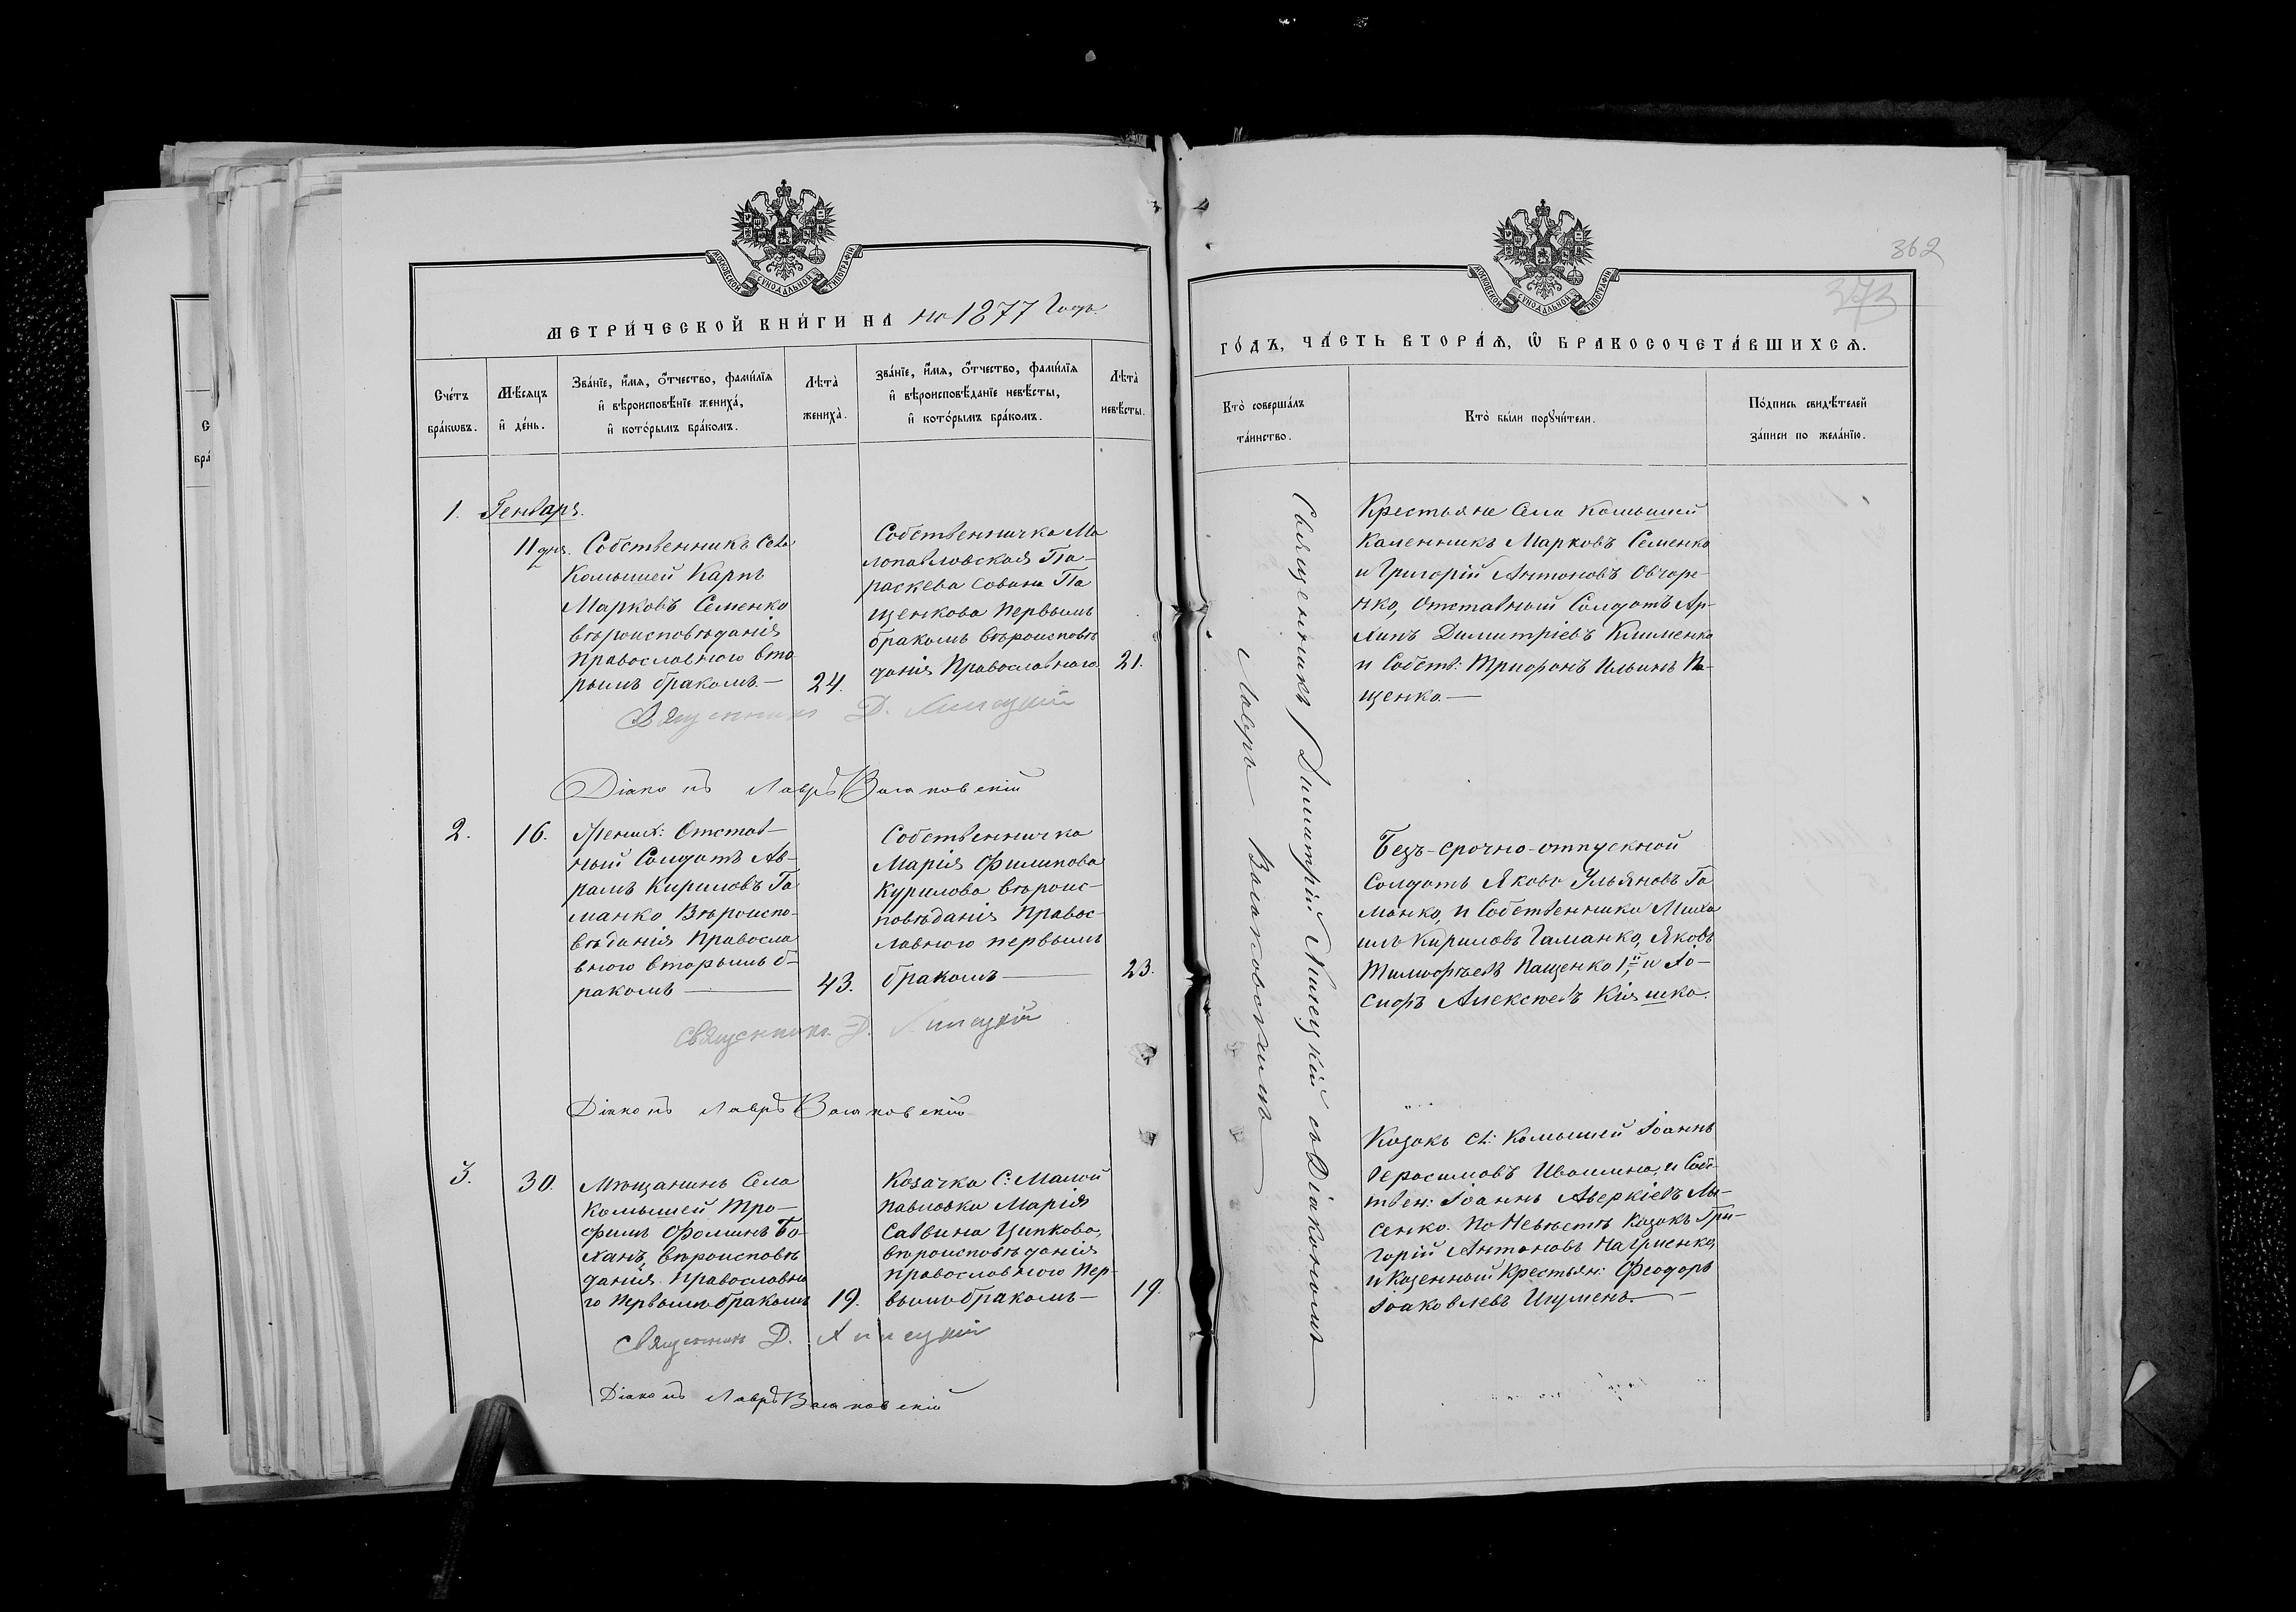 МОСКОВСКОЙ СѴНОДАЛЬНОЙ ТИПОГРАФІИ
МЕТРИ́ЧЕСКОЙ КНИ́ГИ НА на 1877 Годъ.
Сче́тъ
бра́кѡвъ.
Мѣ́сяцъ
и҆ де́нь.
Зва́нїе, и҆́мя, ѻ҆́тчество, фами́лїя
и҆ вѣроисповѣ́нїе жениха̀,
и҆ кото́рымъ бра́комъ.
Лѣта̀
жениха̀.
Зва́нїе, и҆́мя, ѻ҆́тчество, фами́лїя
и҆ вѣроисповѣ́данїе невѣ́сты,
и҆ кото́рымъ бра́комъ.
Лѣта̀
невѣ́сты.
1. Генваря.
11 дня.
Собственникъ Села
Комышей Карпъ
Марковъ Семенко
вѣроисповѣданія
Православного вто
рымъ бракомъ.—
24.
Собственничка Ма
лопавловская Па-
раскева Совина Па
щенкова первымъ
бракомъ вѣроисповѣ
данія Православного.
21.
Священникъ Д. Липецкій
Діаконъ Лавръ
2.
16.
Жених: Отстав-
ный Солдатъ Ав-
рамъ Кириловъ Га
манко Вѣроиспо-
вѣданія Правосла
вного вторымъ б-
ракомъ —
43.
Собственничка
Марія Филипова
Курилова вѣроис-
повѣданія Правос-
лавного первымъ
бракомъ —
23.
Священникъ Д. Липецкій
Діаконъ Лавръ
3.
30.
Мѣщанинъ Села
Комышей Тро-
фимъ Фоминъ Бо-
ханъ, вѣроисповѣ
данія Православно
го первымъ бракомъ
19.
Козачка С: Малой
Павловки Марія
Саввина Ципкова,
вѣроисповѣданія
православного пер-
вымъ бракомъ—
19.
Священникъ Д. Липецкій
Діаконъ Лавръ
362
373
МОСКОВСКОЙ СѴНОДАЛЬНОЙ ТИПОГРАФІИ
ГО́ДЪ, ЧА́СТЬ ВТОРА́Я, Ѡ҆ БРАКОСОЧЕТА́ВШИХСЯ.
Кто̀ соверша́лъ
та́инство.
Кто̀ бы́ли порꙋчи́тели.
По́дпись свидѣ́телей
за́писи по жела́нїю.
Священникъ Димитрій Липецкій съ Діакономъ
Лавръ
Крестьяне Села Комышей
Каленникъ Марковъ Семенко
и Григорій Антоновъ Овчорен-
нко, Отставный Солдатъ Ар-
хипъ Димитріевъ Клименко
и Собств: Трифонъ Ильинъ Па-
щенко.—
Безъ-срочно-отпускной
Солдатъ Яковъ Ульяновъ Га
манко, и Собственники Миха
илъ Кириловъ Гаманко, Яковъ
Тимофѣевъ Пащенко 1й, и Іо-
сифъ Алексѣевъ Кіяшко.
Козакъ Сл: Комышей Іоаннъ
Герасимовъ Ивашина, и Соб-
ствен: Іоаннъ Аверкіевъ Лы-
сенко. По Невѣстѣ Козакъ Гри-
горій Антоновъ Нагриенко,
и Казенный Крестьян: Феодоръ
Іоаковлевъ Игуменъ.—